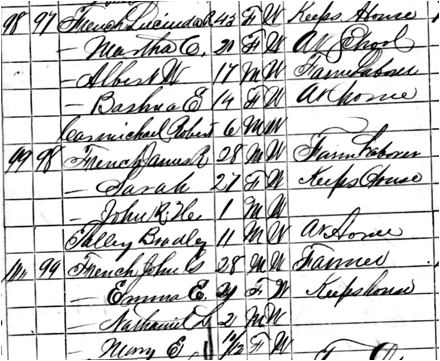 98 97 French Lucinda R 43 F W Keeps House
— Martha C. 20 F W At School
— Albert W 17 M W Farm Laborer
— Bashua E 14 F W At home
Carmichael Robert 6 M W
99 98 French James R 28 M W Farm Laborer
— Sarah 27 F W Keeps House
— John R. 1 M W
Bradley 11 M W At Home
99 French John 28 M W Farmer
— Emma E. F W Keeps house
— Nathaniel 2 M W
— Mary E F W